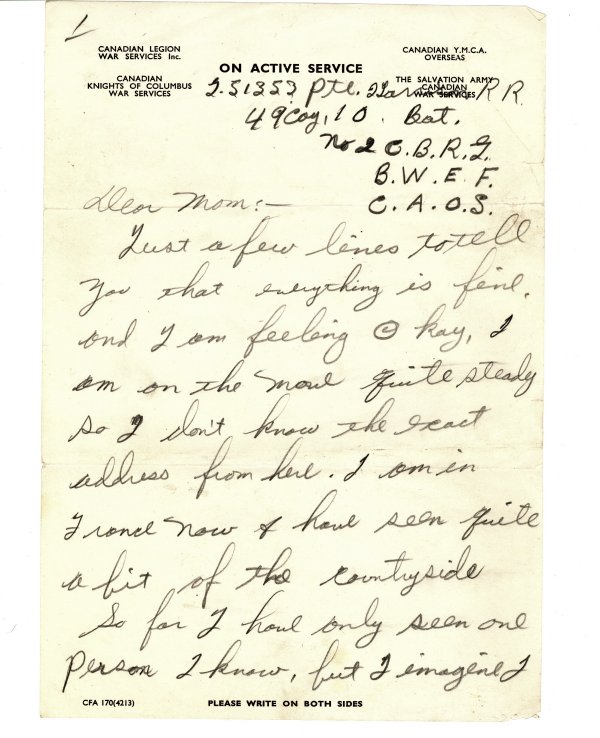 1
CANADIAN LEGION
WAR SERVICES Inc.
CANADIAN
KNIGHTS OF COLUMBUS
WAR SERVICES
ON ACTIVE SERVICE
CANADIAN Y.M.C.A.
OVERSEAS
THE SALVATION ARMY
CANADIAN
WAR SERVICES
Pte. R R.
49 Coy, 10. Bat.
No 2 C.B.R.G.
B.W.E.F.
C.A.O.S.
Dear Mom:—
Just a few lines to tell
you that everything is fine.
and I am feeling O kay, I
am on the move quite steady
so I don't know the exact
address from here. I am in
France now & have seen quite
a bit of the countryside
So far I have only seen one
person I know, but I imagine I
CFA 170(4213)
PLEASE WRITE ON BOTH SIDES